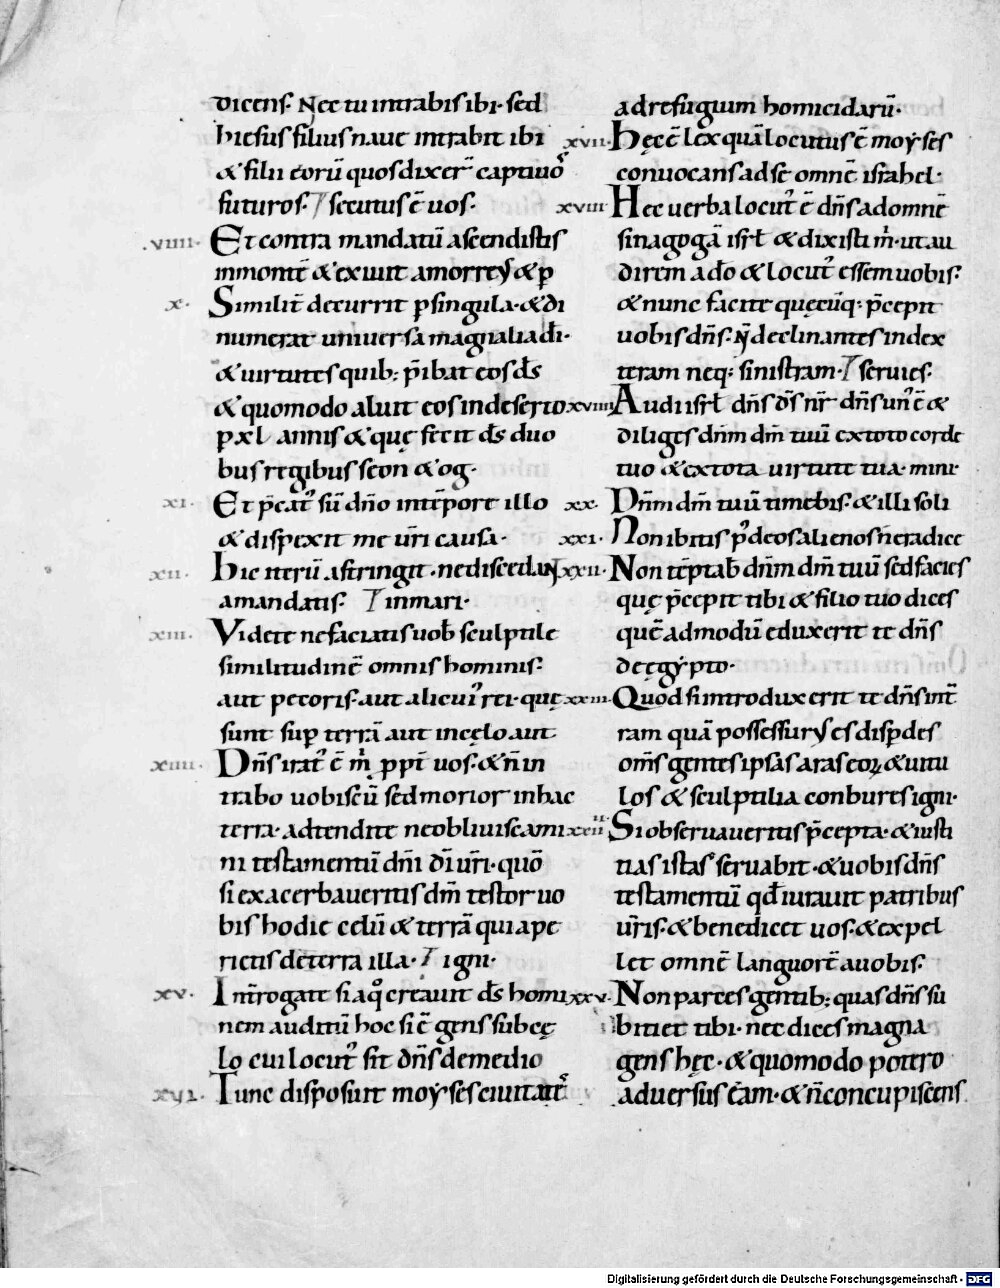 dicens. Nec tu intrabis ibi. sed
hiesus filius naue intrabit ibi
& filii eorū quos dixer̄ captiuo᷒
futuros. ⁊ secutus ē uos.
.viiii. Et contra mandatū ascendistis
in monte & exiuit amorreẏ & p̄
.x. Similit̄ decurrit p singula. & di
numerat uniuersa magnalia dī.
& uirtutes quib; p̄ibat eos ds̄
& quomodo aluit eos in deserto
p xl annis & quę fecit ds̄ duo
bus regibus seon & og.
.xi. Et p̄cat᷒ sū dn̄o in tēpore illo
& dispexit me ur̄i causa.
.xii. Hic iterū astringit. ne discedan
a mandatis. ⁊ in mari.
.xiii. Videte ne faciatis uob̄ sculptile
similitudinē omnis hominis.
aut pecoris. aut alicui᷒ rei. quę
sunt sup terrā aut in cęlo aut
.xiiii. Dn̄s irat᷒ ē m̄ ppt̄ uos. & n̄ in
trabo uobiscū sed morior in hac
terra. adtendite ne obliuiscami
ni testamentū dn̄i dī ur̄i. quō
si exacerbaueritis dm̄ testor uo
bis hodie celū & terrā quia pe
rietis de terra illa. ⁊ igni.
.xv. Int̄rogate si aq᷒ creauit ds̄ homi
nem auditū hoc si ē gens sub cę
lo cui locut᷒ sit dn̄s de medio
.xvi. Tunc disposuit moẏses ciuitat᷒
ad refugium homicidarū.
xvii. Hęc ē lex quā locutus ē moẏses
conuocans ad se omnē israhel.
xviii Hec uerba locut᷒ ē dn̄s ad omnē
sinagogā isrl̄ & dixisti m̄. ut au
direm a dō & locut᷒ essem uobis.
& nunc facite quęcūq; p̄cepit
uobis dn̄s. n̄ declinantes in dex
teram neq; sinistram. ⁊ seruies.
xviiii Audi isrl̄ dn̄s ds̄ nr̄ dn̄s un᷒ ē &
diliges dnm̄ dm̄ tuū ex toto corde
tuo & ex tota uirtute tua. mini.
xx. Dn̄m dm̄ tuū timebis. & illi soli
xxi. Non ibitis p᷒ deos alienos ne radice
xxii. Non tēptab̄ dnm̄ dm̄ tuū sed facies
quę p̄cepit tibi & filio tuo dices
quē admodū eduxerit te dn̄s
de ęgẏpto.
xxiii. Quod si introduxerit te dn̄s in t̄
ram quā possessurẏ es dispdes
om̄s gentes ipsas aras eoꝝ & uitu
los & sculptilia conbures igni.
xxiiii Si obseruaueritis p̄cepta. & iusti
tias istas seruabit. & uobis dn̄s
testamentū qd̄ iurauit patribus
ur̄is. & benedicet uos. & expel
let omnē languorē a uobis.
xxv. Non parces gentib; quas dn̄s su
biciet tibi. nec dices magna
gens hęc. & quomodo potero
aduersus eam. & n̄ concupiscens
Digitalisierung gefördert durch die Deutsche Forschungsgemeinschaft - DFG